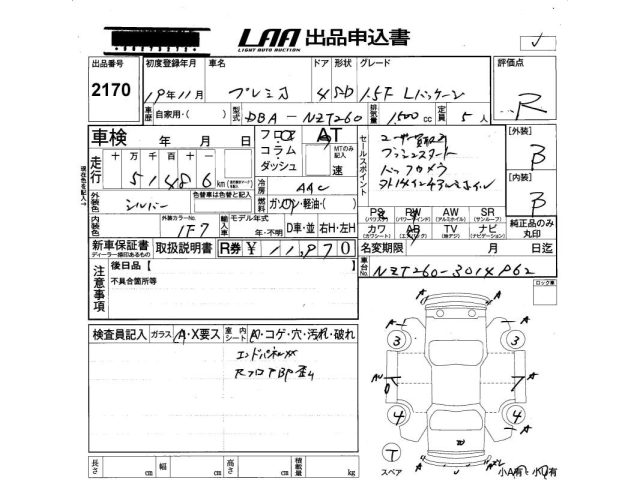 LAA 出品申込書
LIGHT AUTO AUCTION
出品番号 初度登録年月 車名 ドア 形状 グレード 評価点
2170 19年11月 プレミオ 4 SD 1.5F Lパッケージ R
車歴 自家用・( ) 型式 DBA-NZT260 排気量 1,500cc 定員 5人
車検 年 月 日
フロア コラム ダッシュ AT MTのみ記入 速
セールスポイント
ユーザー買取車
プッシュスタート
バックカメラ
[外装] B
[内装] B
走行 十 万 千 百 十 一
51486 km
冷房 AAC
外装色 シルバー 色替車は色替と記入
燃料 ガソリン・軽油・( )
外装カラーNo. 1F7
輸入車 モデル年式 年・不明 D車・並 右H・左H
PS (パワステ) PW (パワーウインド) AW (アルミホイル) SR (サンルーフ)
カワ (カワシート) AB (エアバッグ) TV (地デジ) ナビ (ナビゲーション)
純正品のみ丸印
新車保証書 ディーラー捺印あるもの 取扱説明書 R券 ¥ 11,970
名変期限 月 日迄
車台No. NZT260-3014862
注意事項 後日品【
不具合箇所等
ロック車
検査員記入 ガラス A・X要ス 室内シート キリ・コゲ・穴・汚れ・破れ
エンドパネルXX
RフロアBP歪み
A
A
A
A
3
3
A
A
4
4
W
T
スペア
小A有 小U有
長さ cm 幅 cm 高さ cm 積載量 kg